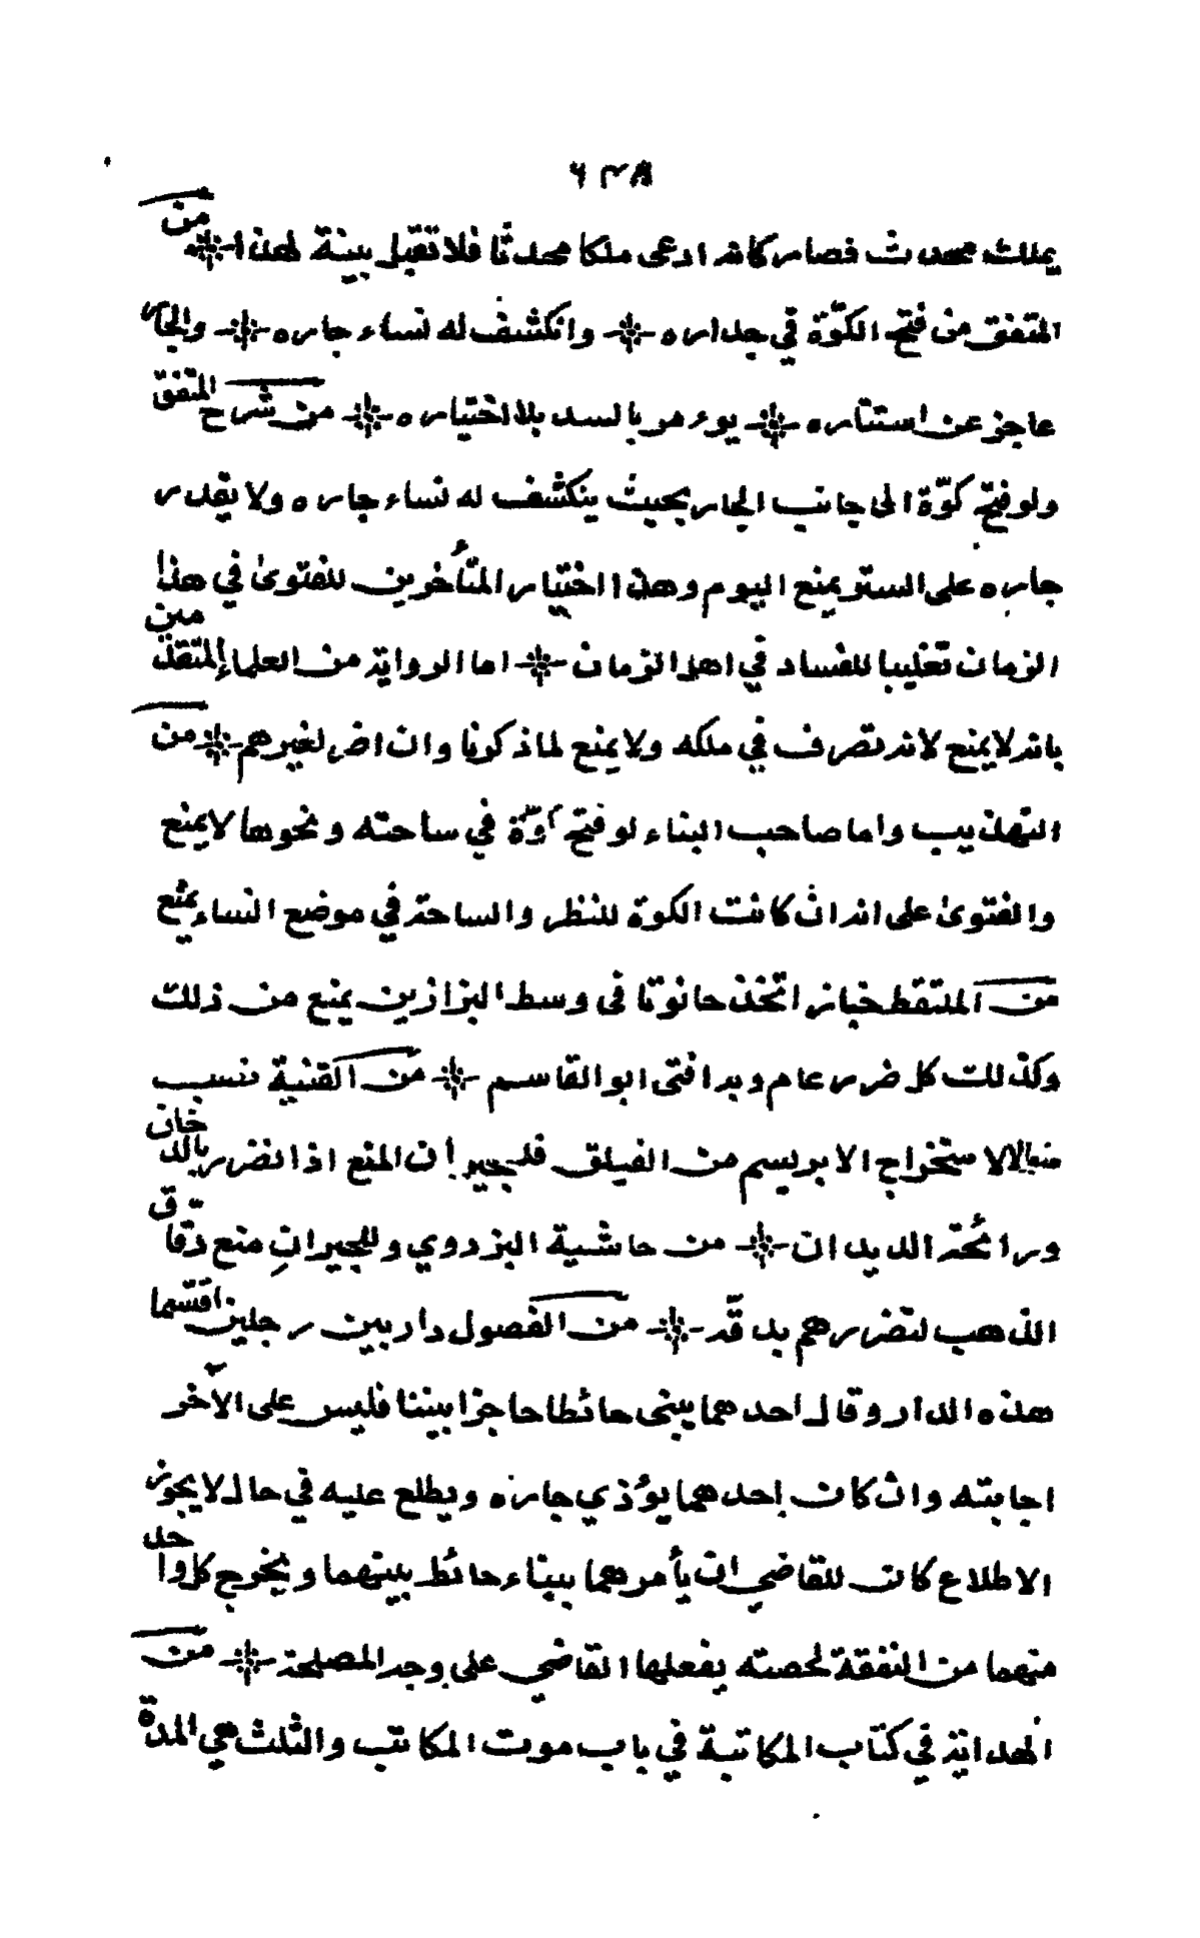 ٦٣٨
يملك محدث فصار كانه ادعى ملكا محدثا فلا تقبل بينة لهذا ✻ من
المتفق من فتح الكوّة في جداره ✻ وانكشف له نساء جاره ✻ والجار
عاجز عن استتاره ✻ يوءمر بالسد بلا اختياره ✻ من شرح المتفق
ولو فتح كوّة الى جانب الجار بحيث ينكشف له نساء جاره ولا يقدر
جاره على الستر يمنع اليوم وهذا اختيار المتأخرين للفتوى في هذا
الزمان تغليبا للفساد في اهل الزمان ✻ اما الرواية من العلماء المتقدمين
بانه لا يمنع لانه تصرف في ملكه ولا يمنع لما ذكرنا وان اضر لغيرهم ✻ من
التهذيب واما صاحب البناء لو فتح كوّة في ساحته ونحوها لا يمنع
والفتوى على انه ان كانت الكوة للنظر والساحة في موضع النساء يمنع
من الملتقط خباز اتخذ حانوتا في وسط البزازين يمنع من ذلك
وكذلك كل ضرر عام وبه افتى ابو القاسم ✻ من القنية نسب
منوالا لاستخراج الابريسم من الفيلق فللجيران المنع اذا تضرر بالدخان
ورائحة الديدان ✻ من حاشية البزدوي وللجيران منع دقاق
الذهب لتضررهم بدقّه ✻ من الفصول دار بين رجلين اقتسما
هذه الدار وقال احدهما يبنى حائطا حاجزا بيننا فليس على الآخر
اجابته وان كان احدهما يؤذي جاره ويطلع عليه في حال لا يجوز
الاطلاع كان للقاضي ان يأمرهما ببناء حائط بينهما ويخرج كل واحد
منهما من النفقة لحصته يفعلها القاضي على وجه المصلحة ✻ من
الهداية في كتاب المكاتبة في باب موت المكاتب والثلث هي المدة